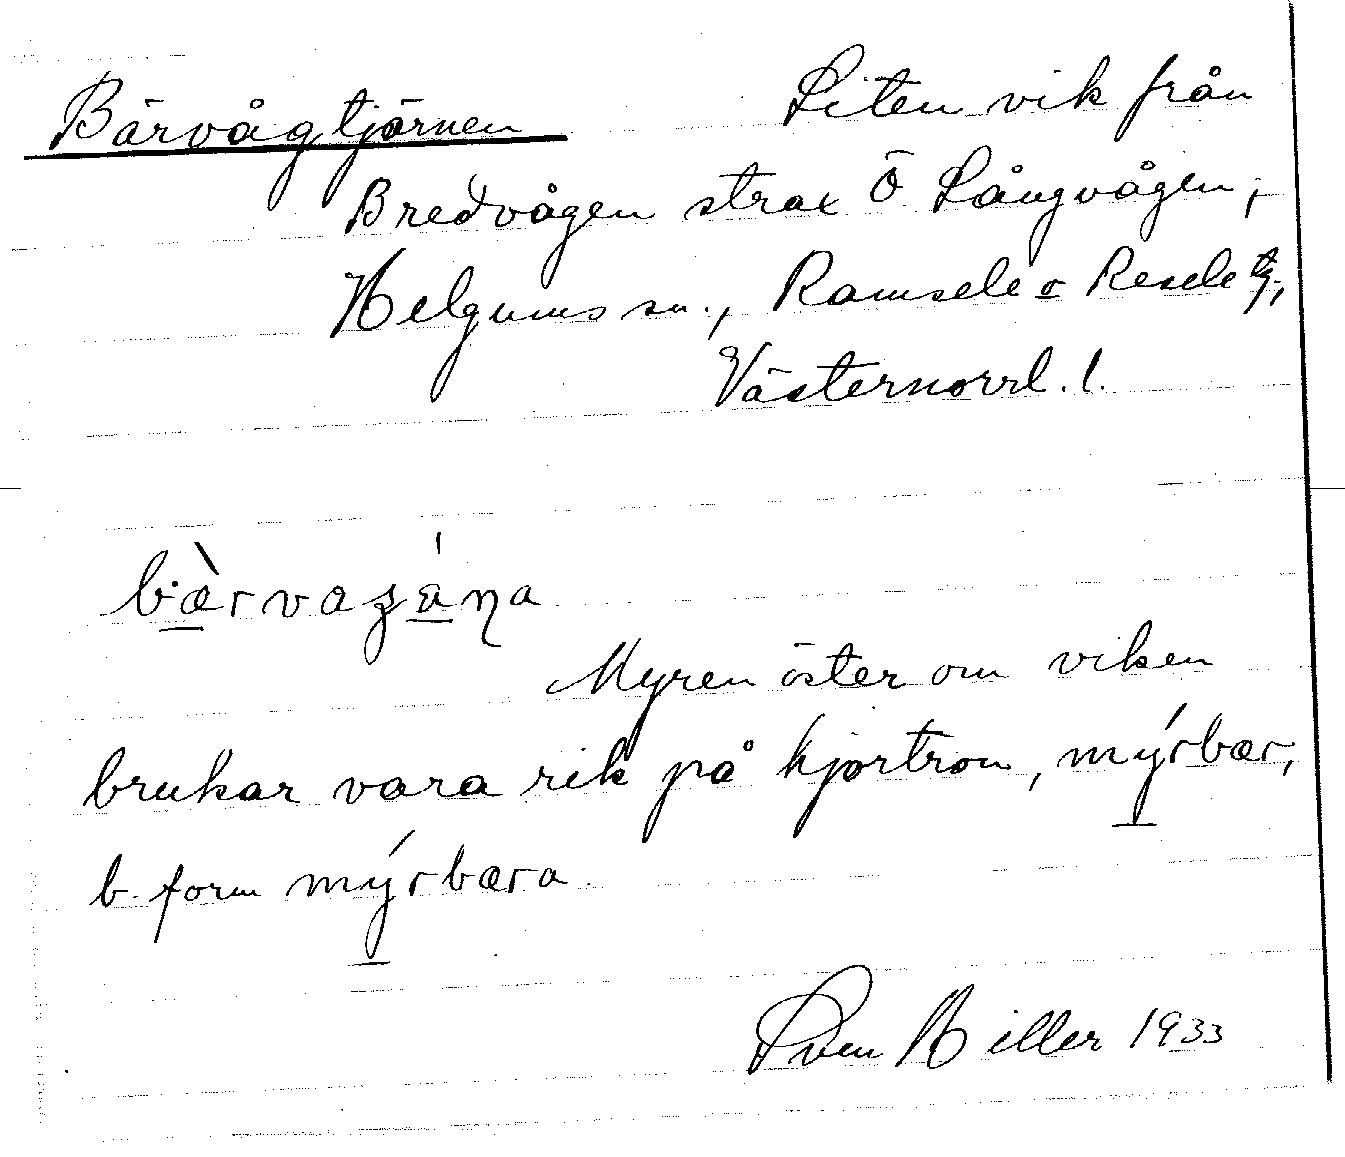 Bärvågtjärnen Liten vik från
Bredvågen strax Ö Långvågen,
Helgums sn., Ramsele o Resele tg.,
Västernorrl. l.
Myren öster om viken
brukar vara rik på hjortron, mýrbær,
b. form mýrbæra
Sven Hiller 1933